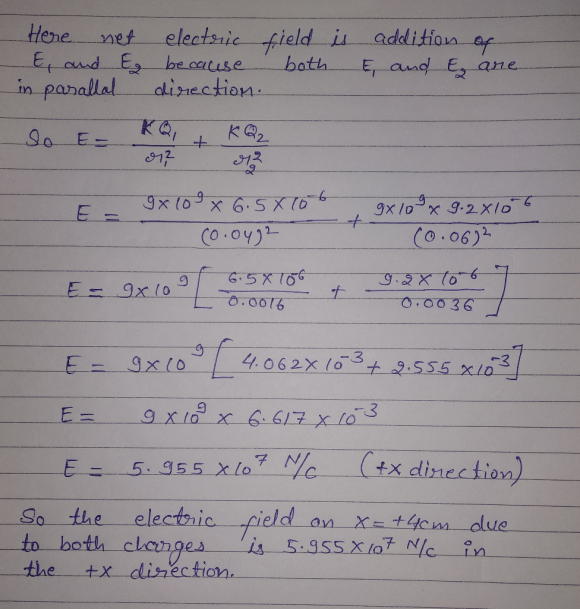 Here net electric field is addition of
E₁ and E₂ because both E₁ and E₂ are
in parallal direction.
So E = KQ₁/r₁² + KQ₂/r₂²
E = 9×10⁹ × 6.5×10⁻⁶/(0.04)² + 9×10⁹ × 9.2×10⁻⁶/(0.06)²
E = 9×10⁹ [ 6.5×10⁻⁶/0.0016 + 9.2×10⁻⁶/0.0036 ]
E = 9×10⁹ [ 4.062×10⁻³ + 2.555×10⁻³ ]
E = 9×10⁹ × 6.617×10⁻³
E = 5.955×10⁷ N/C (+x direction)
So the electric field on x=+4cm due
to both charges is 5.955×10⁷ N/C in
the +x direction.